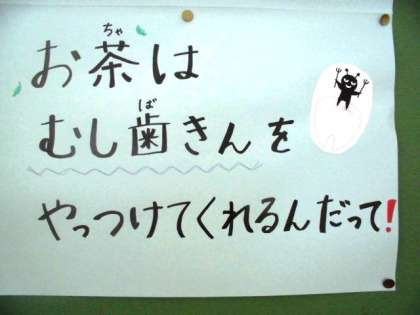 お茶は
むし歯きんを
やっつけてくれるんだって!